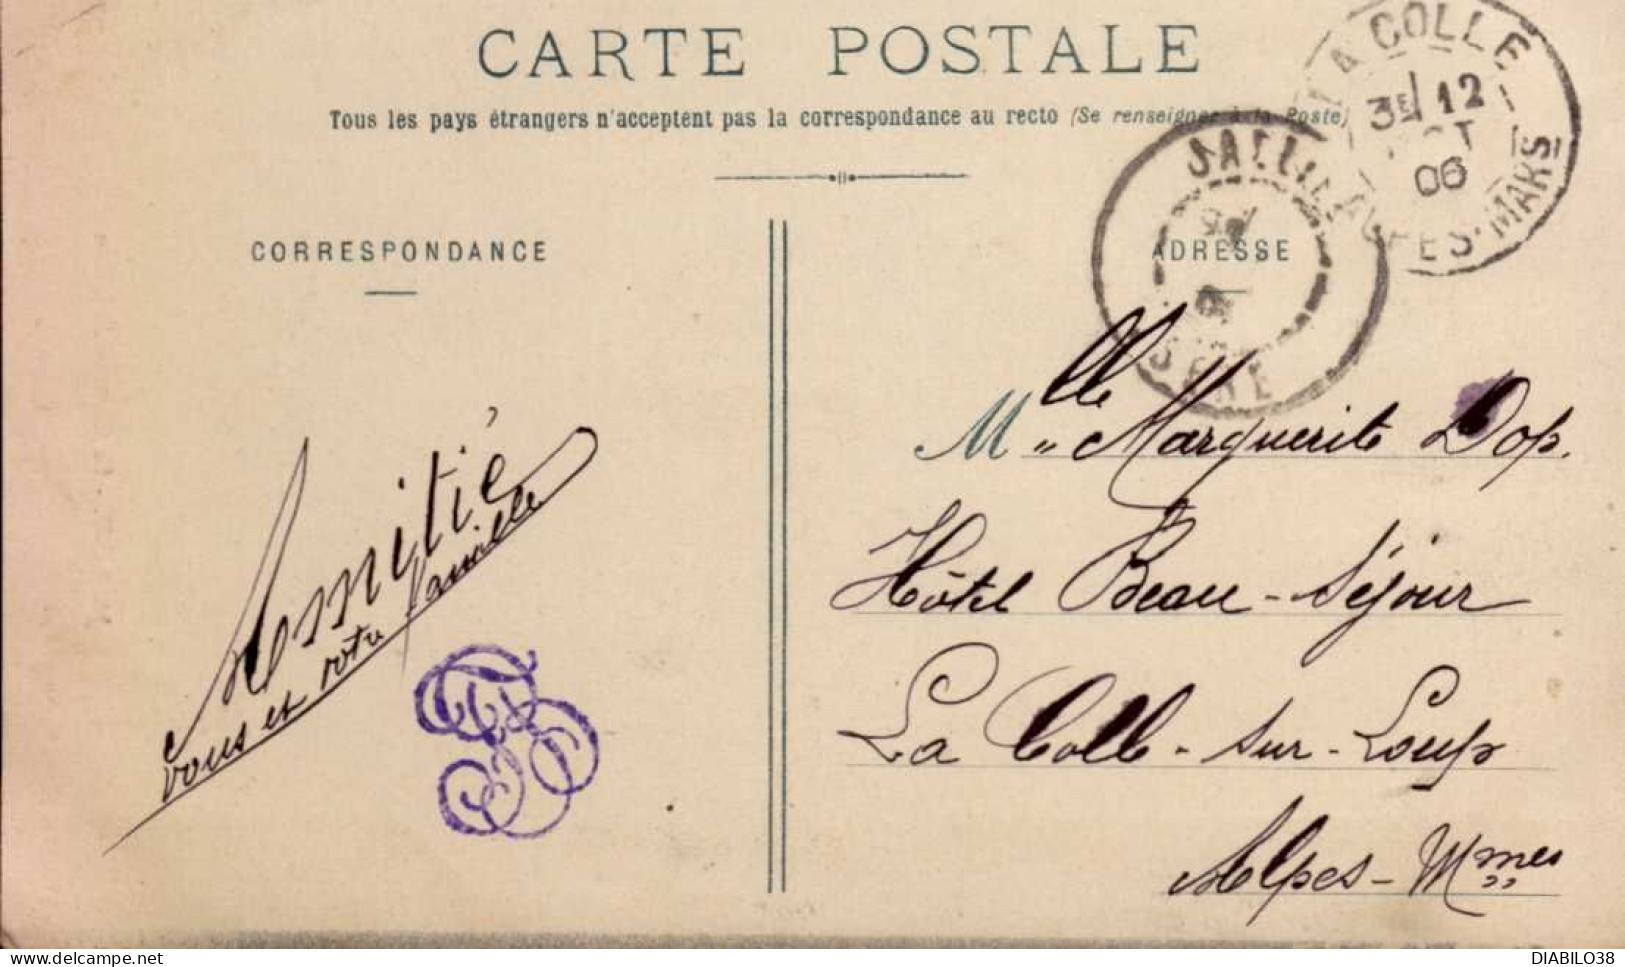 CARTE POSTALE
Tous les pays étrangers n'acceptent pas la correspondance au recto (Se renseigner à la Poste)
CORRESPONDANCE
ADRESSE
LA COLLE
3E 12
06
ALPES-MARS
ISÈRE
Amitié
vous et votre famille
Mlle Marguerite Dop.
Hôtel Beau-Séjour
La Colle-sur-Loup
Alpes-Mmes
delcampe.net
DIABILO38